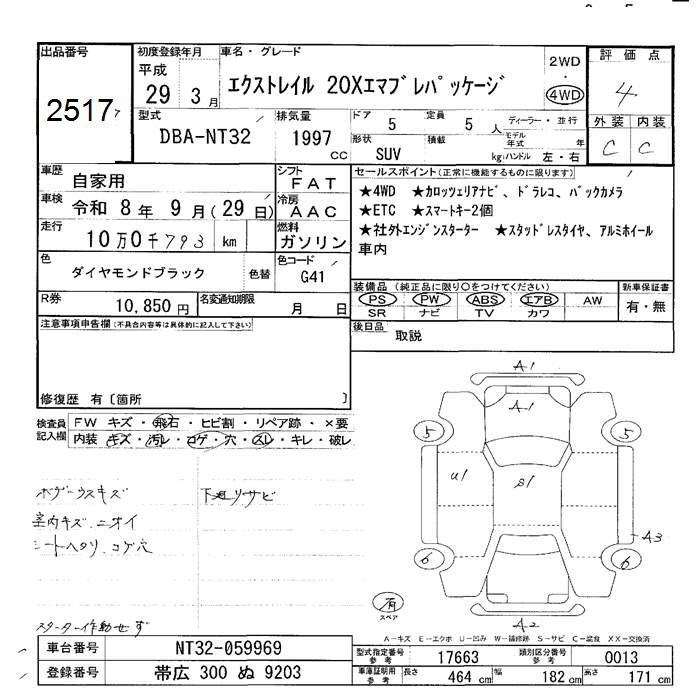 出品番号
2517
初度登録年月
平成
29 3 月
車名・グレード
エクストレイル 20Xエマブレパッケージ
2WD
・
4WD
評価点
4
外装 内装
C C
型式
DBA-NT32
排気量
1997
cc
ドア 5
定員 5 人
ディーラー・並行
モデル年式 年
形状 SUV
積載 kg
ハンドル 左・右
車歴 自家用
車検 令和 8 年 9 月(29 日)
走行 10万0千793 km
シフト FAT
冷房 AAC
燃料 ガソリン
色 ダイヤモンドブラック 色替
色コード G41
R券 10,850 円
名変通知期限 月 日
セールスポイント(正常に機能するものに限ります)
★4WD ★カロッツェリアナビ、ドラレコ、バックカメラ
★ETC ★スマートキー2個
★社外エンジンスターター ★スタッドレスタイヤ、アルミホイール
車内
装備品(純正品に限り○をつけてください)
PS PW ABS エアB AW
SR ナビ TV カワ
新車保証書
有・無
後日品 取説
注意事項申告欄(不具合内容等は具体的に記入して下さい)
修復歴 有〔箇所 〕
検査員記入欄
FW キズ・飛石・ヒビ割・リペア跡・×要
内装 キズ・汚レ・コゲ・穴・スレ・キレ・破レ
ボデーウスキズ
下廻リサビ
室内キズ、ニオイ
シートヘタリ、コゲ穴
スターター作動せず
A-1
A-1
5
5
U1
S1
A3
6
6
有
スペア
A-2
A-キズ E-エクボ U-凹み W-補修跡 S-サビ C-腐食 XX-交換済
車台番号 NT32-059969
登録番号 帯広 300 ぬ 9203
型式指定番号 参考 17663
類別区分番号 参考 0013
車庫証明用 参考 長さ 464 cm 幅 182 cm 高さ 171 cm